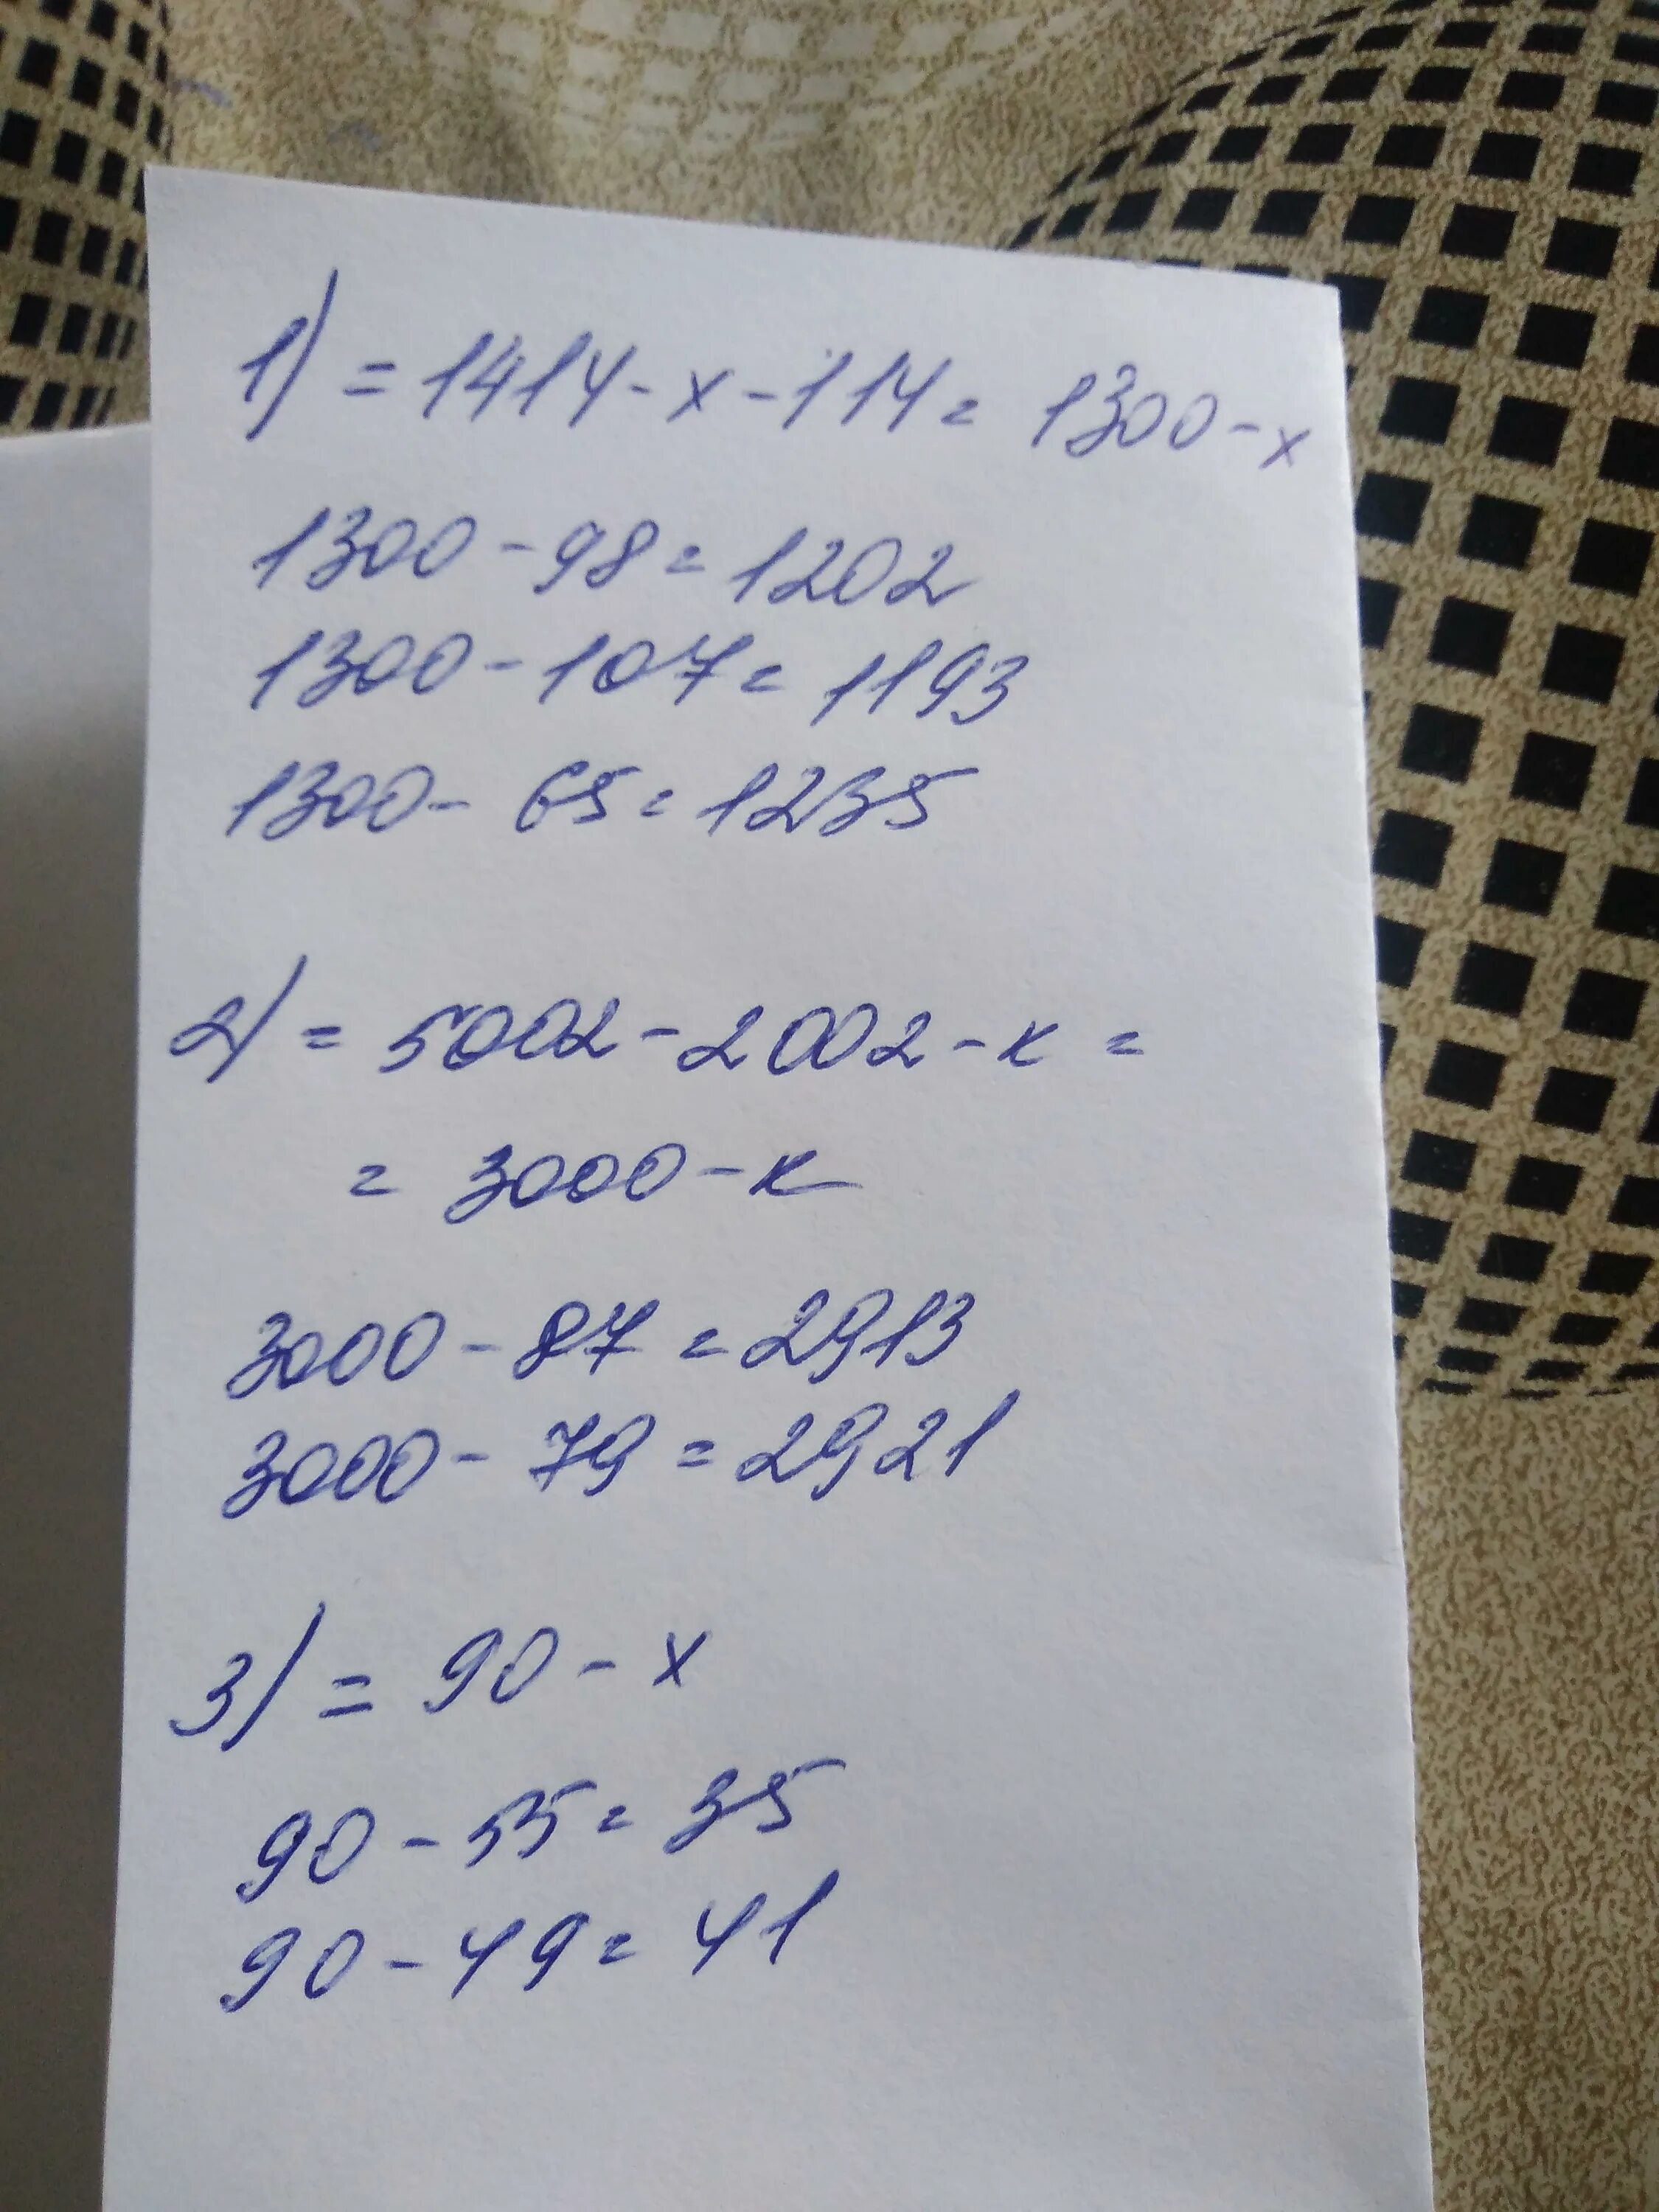 1) = 1414 - x - 114 = 1300 - x
1300 - 98 = 1202
1300 - 107 = 1193
1300 - 65 = 1235
2) = 5002 - 2002 - к =
= 3000 - к
3000 - 87 = 2913
3000 - 79 = 2921
3) = 90 - x
90 - 55 = 35
90 - 49 = 41